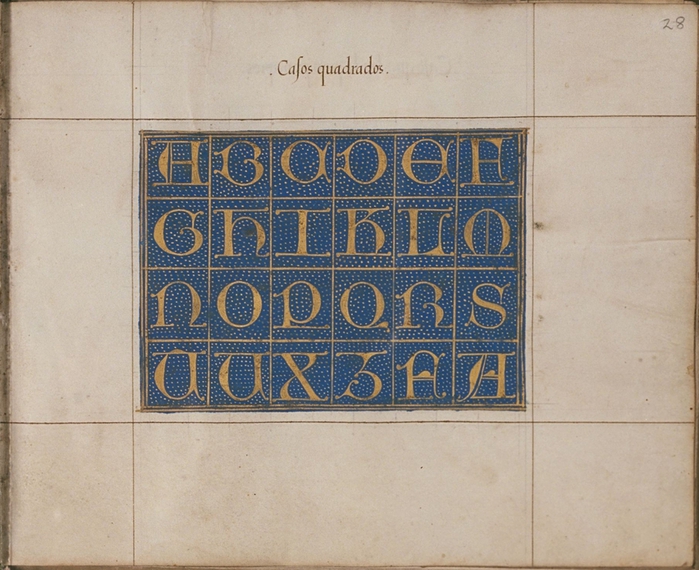 28
. Caſos quadrados .
A B C D E F
G H I K L M
N O P Q R S
U U X Z F A